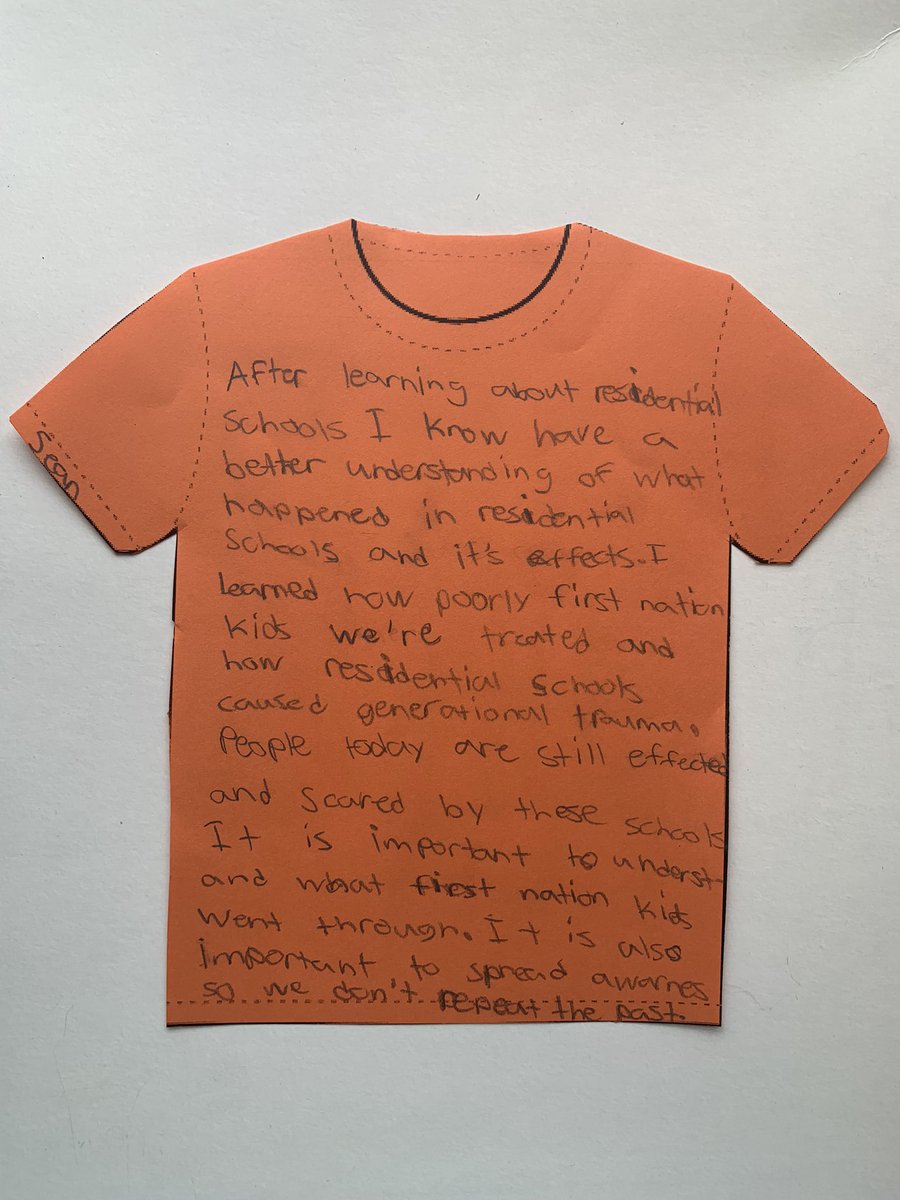 After learning about residential
schools I know have a
better understanding of what
happened in residential
schools and it's effects. I
learned how poorly first nation
kids we're treated and
how residential schools
caused generational trauma.
People today are still effected
and scared by these schools
It is important to underst-
and what first nation kids
went through. It is also
important to spread awarnes
so we don't repeat the past.
Sean